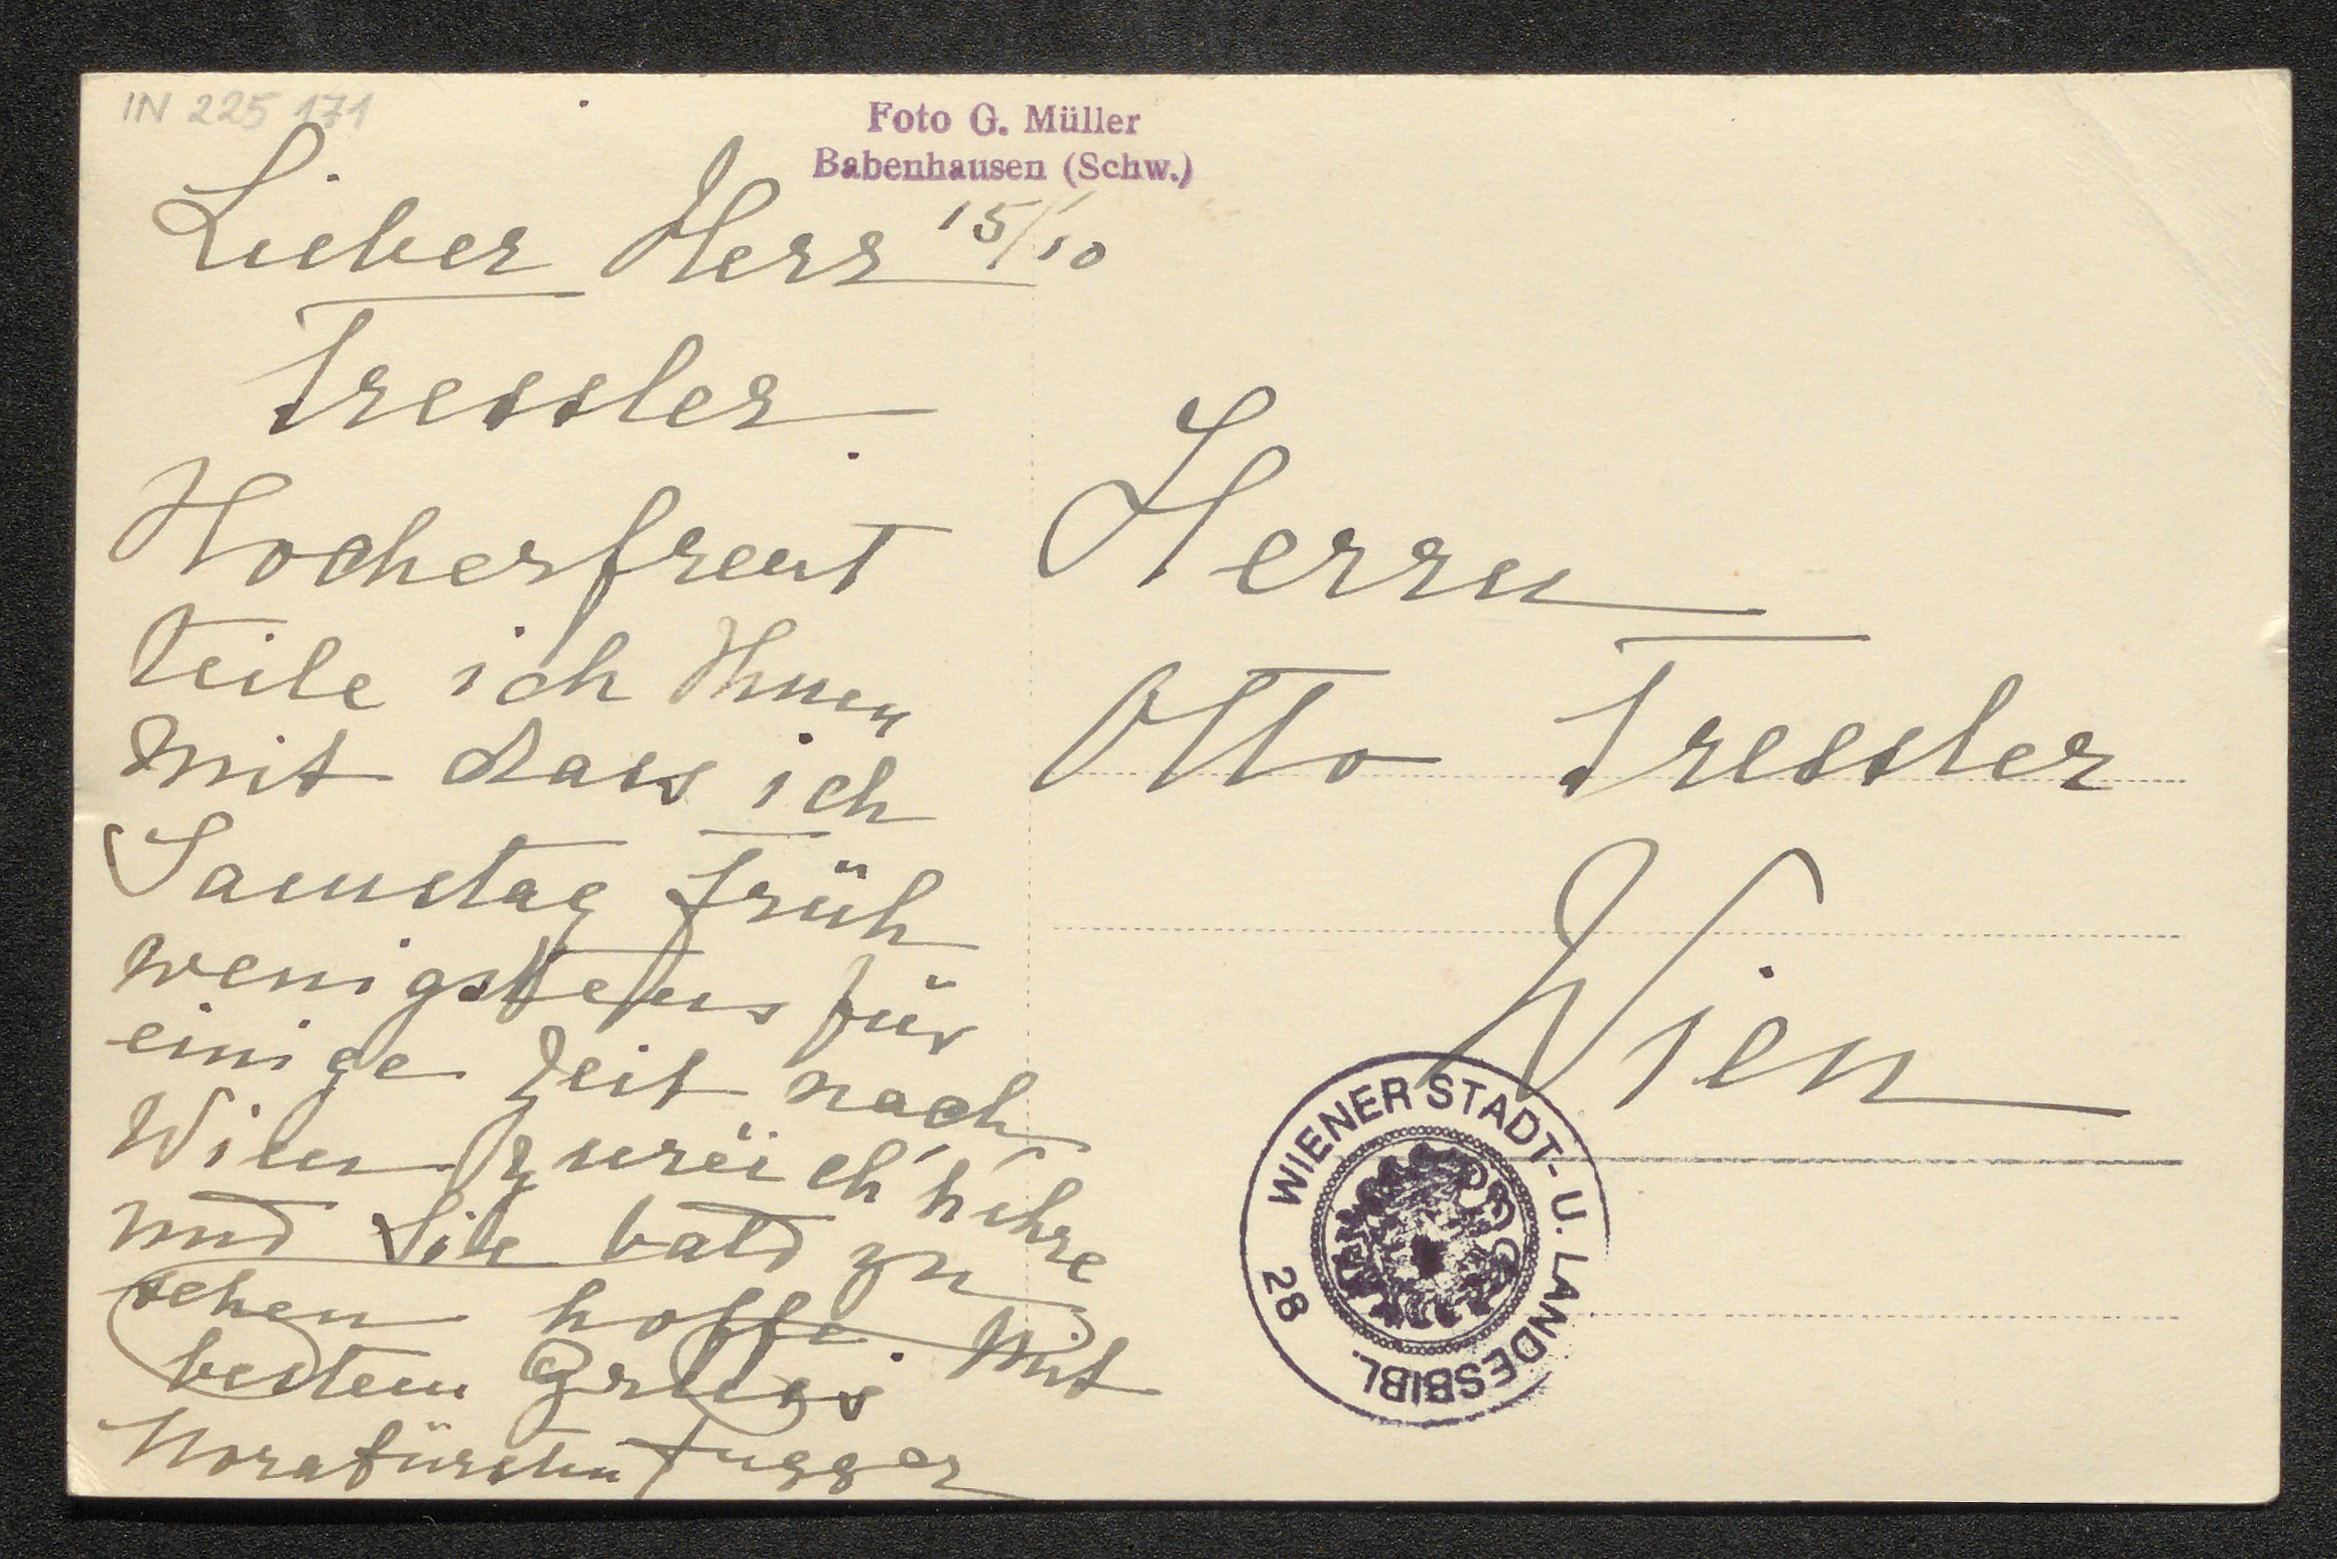 IN 225 171
Foto G. Müller
Babenhausen (Schw.)
15/10
Lieber Herr
Tressler
Hocherfreut
teile ich Ihnen
mit dass ich
Samstag Früh
wenigstens für
einige Zeit nach
Wien zurück kehre
und Sie bald zu
sehen hoffe. Mit
bestem Gruss
Norafürstin Fugger
Herrn
Otto Tressler
Wien
WIENER STADT- U. LANDESBIBL.
28